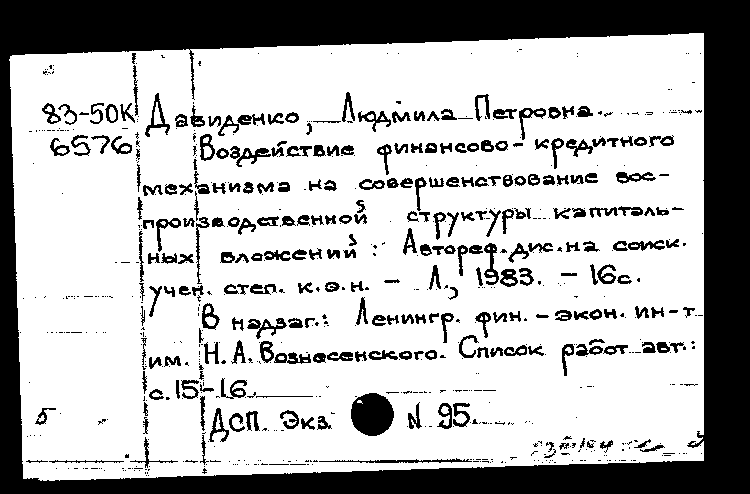 83-50К Давиденко, Людмила Петровна.
6576 Воздействие финансово-кредитного
механизма на совершенствование вос-
производственной структуры капиталь-
ных вложений: Автореф. дис. на соиск.
учен. степ. к.э.н. - Л., 1983. - 16с.
В надзаг.: Ленингр. фин.-экон. ин-т
им. Н.А. Вознесенского. Список работ авт.:
с. 15-16.
Б ДСП. Экз. N 95.